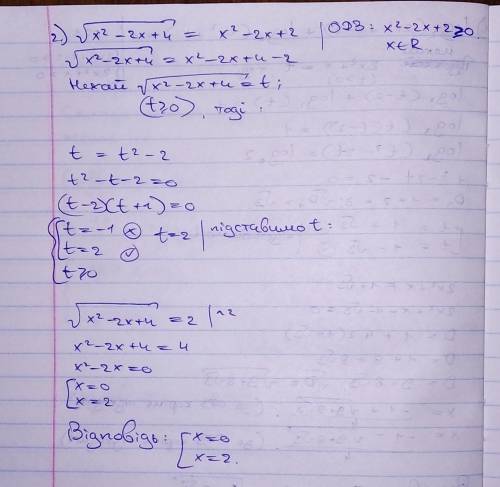 2.) √(x² - 2x + 4) = x² - 2x + 2 | ОДЗ: x² - 2x + 2 ≥ 0
x ∈ R
√(x² - 2x + 4) = x² - 2x + 4 - 2
Нехай √(x² - 2x + 4) = t;
(t ≥ 0), тоді:
t = t² - 2
t² - t - 2 = 0
(t - 2)(t + 1) = 0
{ [ t = -1 ⊗ t = 2 | підставимо t:
t = 2 ✓
t ≥ 0
√(x² - 2x + 4) = 2 | ^2
x² - 2x + 4 = 4
x² - 2x = 0
[ x = 0
x = 2
Відповідь: [ x = 0
x = 2.